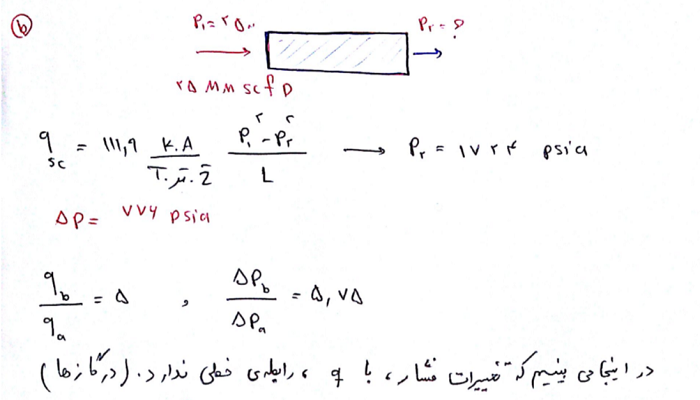 b
P₁ = ۲۵۰۰ P₂ = ?
۲۵ MM scf D
q_sc = ۱۱۱,۹ (K.A / T.μ̄.z̄) (P₁² - P₂² / L) → P₂ = ۱۷۲۴ psia
ΔP = ۷۷۶ psia
q_b / q_a = ۵ , ΔP_b / ΔP_a = ۵,۷۵
در اینجا می بینیم که تغییرات فشار، با q ، رابطه‌ی خطی ندارد. (در گازها)